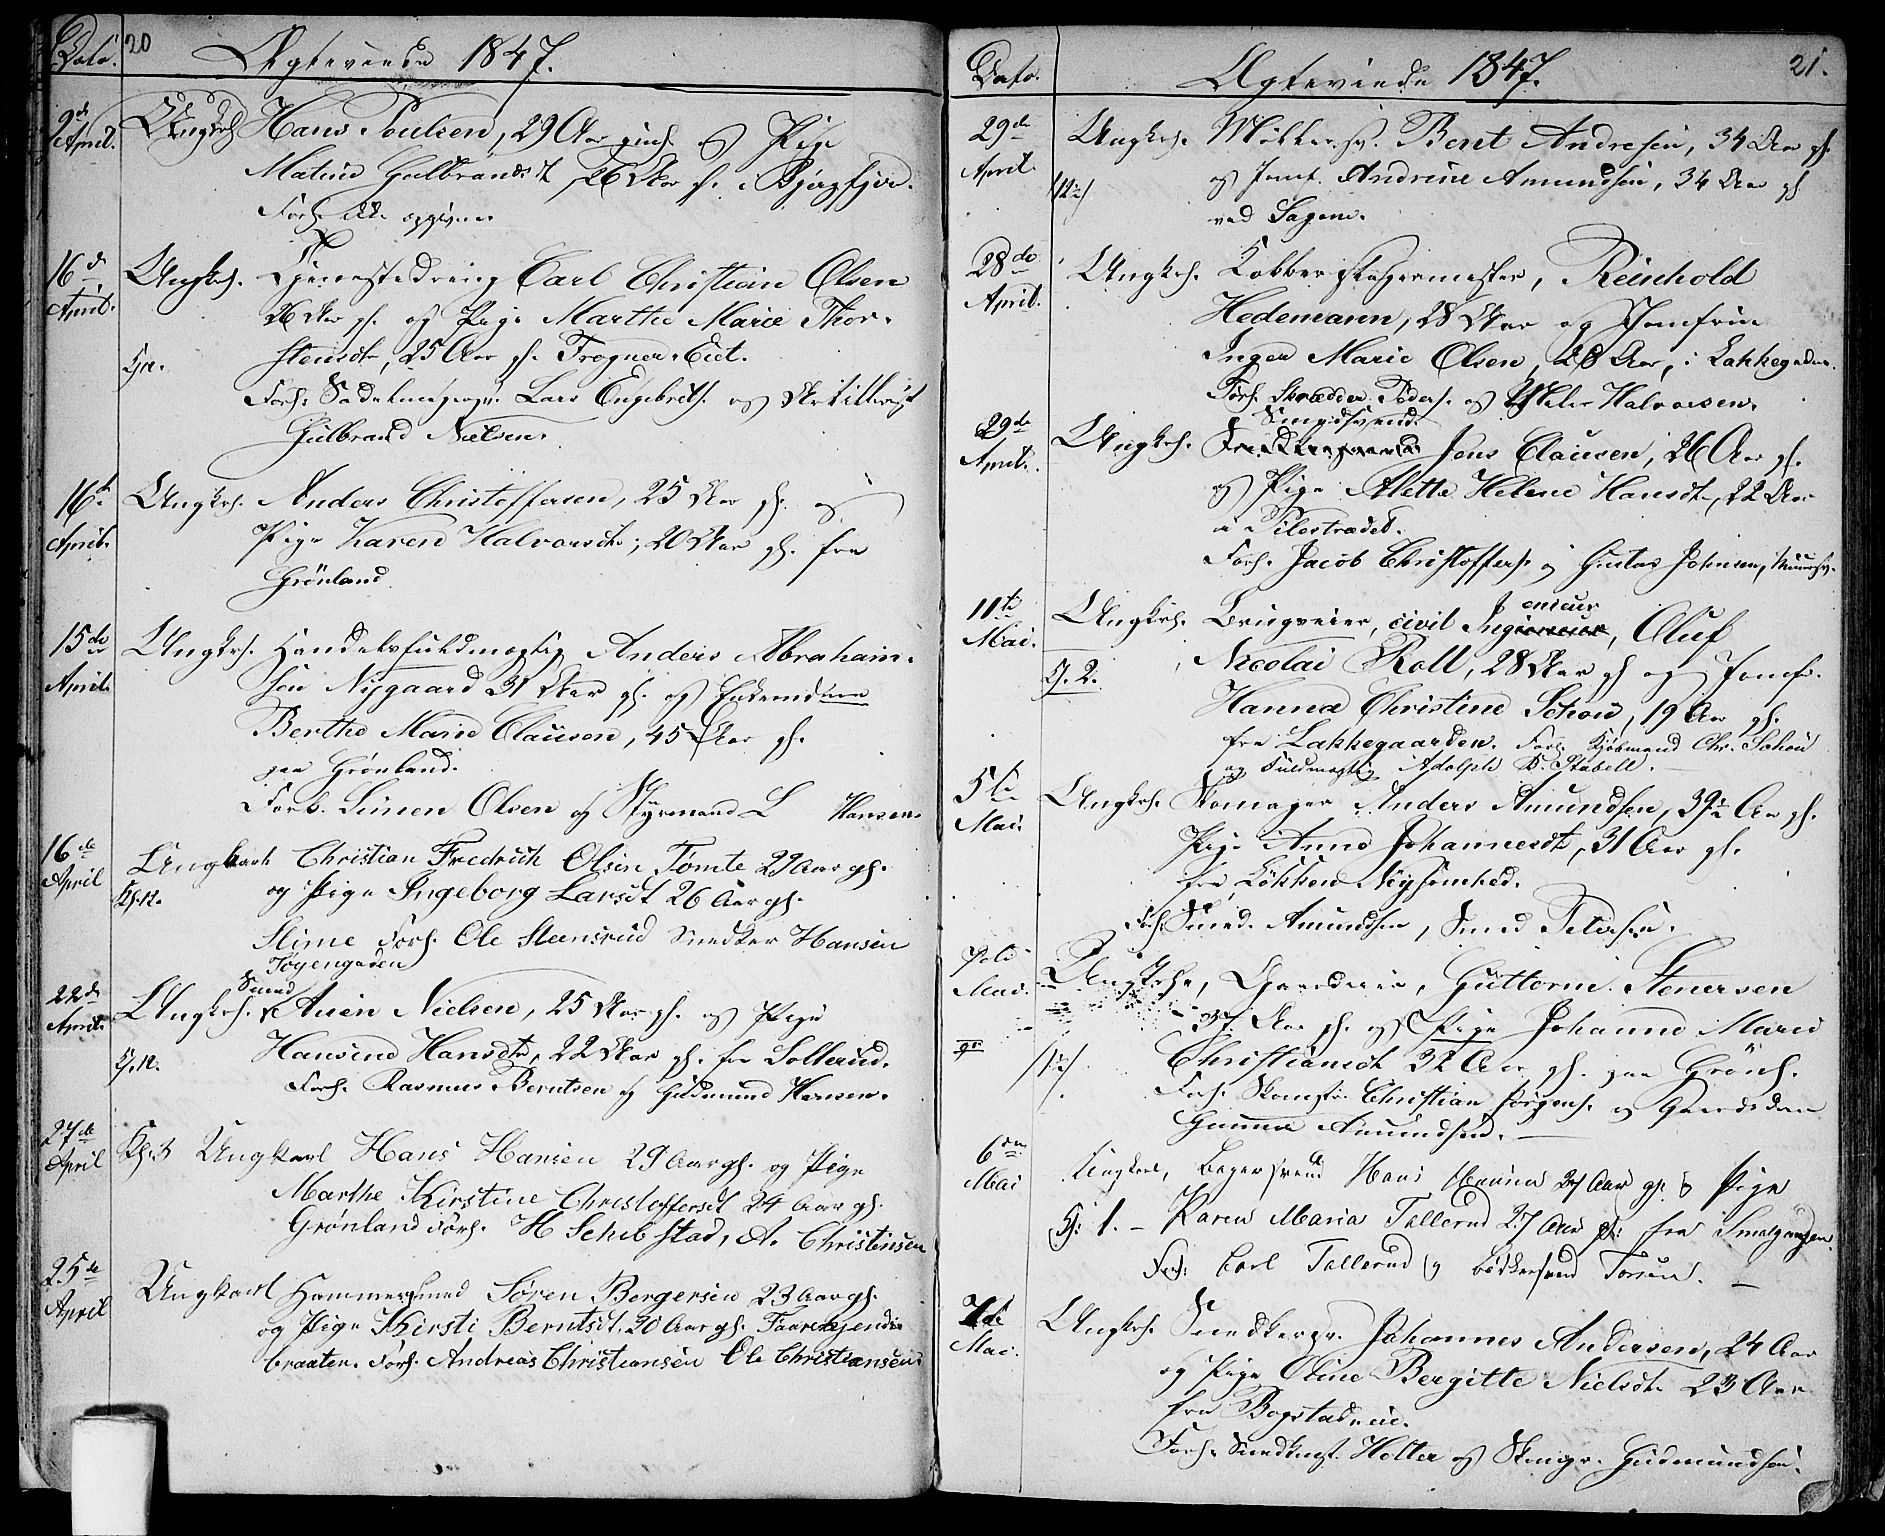 Dato. 20 Ægteviede 1847.
9de April. Ungkrl Hans Poulsen, 29 Aar og Pige
Matine Gulbrandsdt, 26 Aar i
Forl. ikke opgivne
16de April. Ungkrl. Tjenestedreng Carl Christian Olsen
26 Aar gl. og Pige Marthe Marie Thor-
stensdt, 25 Aar gl. Eiet.
Forl. Lars Engebrets. og
Gulbrand Nielsen.
16de April. Ungkrl. Anders Christoffersen, 25 Aar gl. og
Pige Karen Halvorsdt, 20 Aar gl. fra
Grönland
15de April. Ungkrl. Handelsfuldmægtig Anders Abraham-
sen Nygaard 31 Aar gl. og Enkemadme
Berthe Marie Clausen, 45 Aar gl.
paa Grönland.
Forl. Simen Olsen og Styrmand L Hansen.
16de April Ungkarl Christian Fredrich Olsen Tømte 29 Aar gl.
og Pige Ingeborg Larsdt 26 Aar gl.
Slime Forl. Ole Steensrud Snedker Hansen
Tøyengaden
22de April. Ungkrl. Smed Auen Nielsen, 25 Aar gl. og Pige
Hansine Hansdt, 22 Aar gl. fra Sollerud.
Forl. Rasmus Berntsen og Gudmund Hansen.
27de April Ungkarl Hans Hansen 29 Aar gl. og Pige
Marthe Kirstine Christoffersdt 24 Aar gl.
Grønland Forl. H Schibstad, A. Christensen
25de April Ungkarl Hammersmed Søren Borgersen 23 Aar gl.
og Pige Kirsti Berntsdt. 20 Aar gl.
braaten. Forl. Andreas Christiansen Ole Christiansen
Dato. Ægteviede 1847. 21.
29de April. Ungkrl. Møllersv. Bent Andresen, 34 Aar gl.
og Jomf. Andrine Amundsen, 34 Aar gl
ved Sagene.
28de April. Ungkrl. Kobberslagermester, Reinhold
Hedemann, 28 Aar og Jomfrue
Inger Marie Olsen, 28 Aar, i Lakkegaden.
Forl. Skrædder Peders. og Halvorsen.
Smedsvend
29de April. Ungkrl. Jens Clausen, 26 Aar gl.
og Pige Alette Helene Hansdt, 22 Aar
i Pilestrædet.
Forl. Jacob Christoffers. og Gustav Johnsen, Muursv.
11te Mai. Ungkrl. Brugseier, civil Ingenieur, Oluf
G. 2. Nicolai Roll, 28 Aar gl og Jomfr.
Hanna Christine Schou, 19 Aar gl.
fra Lakkegaarden. Forl. Kjøbmand Chr. Schou
og Fuldmægtig Adolph B. Stabell.
5te Mai. Ungkrl. Skomager Anders Amundsen, 39½ Aar gl.
Pige Anne Johannesdt, 31 Aar gl.
fra Lökken Nysomhed.
Forl. Smed. Amundsen, Smed Petersen.
Mai. Ungkrl., Gaardeier, Guttorm Stenersen
37 Aar gl. og Pige Johanne Marie
Christiansdt 32 Aar gl. paa Grönl.
Forl. Skomgr. Christian Jörgens. og
Gunner Amundsen.
6te Mai Ungkarl, Bagersvend Hans Hansen 27 Aar gl. & Pige
G. 1. – Karen Maria Tallerud 27 Aar gl: fra Smalgangen.
Forl: Carl Tallerud og Bödkersvend
7de Mai. Ungkrl. Snedkersv. Johannes Andersen, 24 Aar
og Pige Oline Bergitte Nielsdt. 23 Aar
fra Bogstadveie.
Forl. Snedkmst. Holter og Skomgr. Gudmundsen.